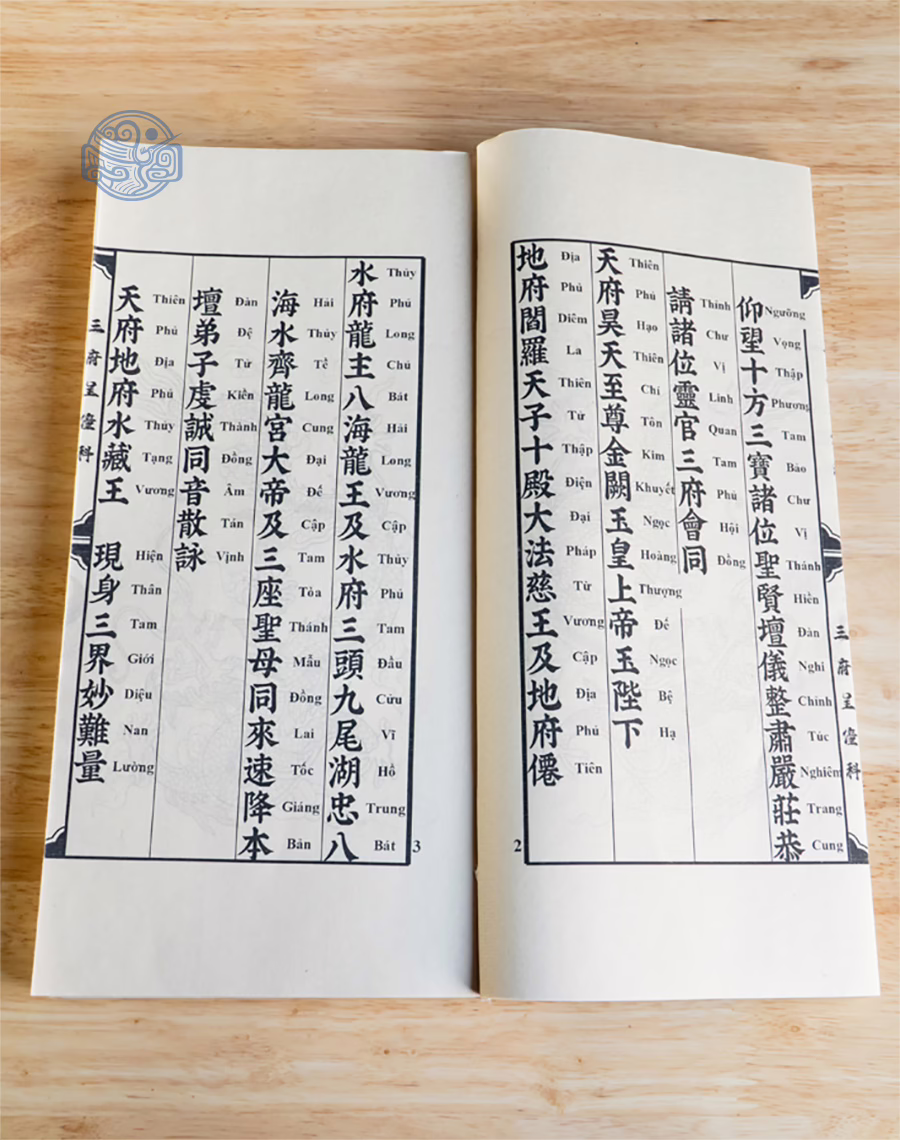 仰望十方三寶諸位聖賢壇儀整肅嚴莊恭
Ngưỡng Vọng Thập Phương Tam Bảo Chư Vị Thánh Hiền Đàn Nghi Chỉnh Túc Nghiêm Trang Cung
請諸位靈官三府會同
Thỉnh Chư Vị Linh Quan Tam Phủ Hội Đồng
天府昊天至尊金闕玉皇上帝玉陛下
Thiên Phủ Hạo Thiên Chí Tôn Kim Khuyết Ngọc Hoàng Thượng Đế Ngọc Bệ Hạ
地府閻羅天子十殿大法慈王及地府僊
Địa Phủ Diêm La Thiên Tử Thập Điện Đại Pháp Từ Vương Cập Địa Phủ Tiên
三府呈科
2
水府龍主八海龍王及水府三頭九尾湖忠八
Thủy Phủ Long Chủ Bát Hải Long Vương Cập Thủy Phủ Tam Đầu Cửu Vĩ Hồ Trung Bát
海水齊龍宮大帝及三座聖母同來速降本
Hải Thủy Tề Long Cung Đại Đế Cập Tam Tỏa Thánh Mẫu Đồng Lai Tốc Giáng Bản
壇弟子虔誠同音散詠
Đàn Đệ Tử Kiền Thành Đồng Âm Tán Vịnh
天府地府水藏王 現身三界妙難量
Thiên Phủ Địa Phủ Thủy Tạng Vương Hiện Thân Tam Giới Diệu Nan Lường
三府呈科
3